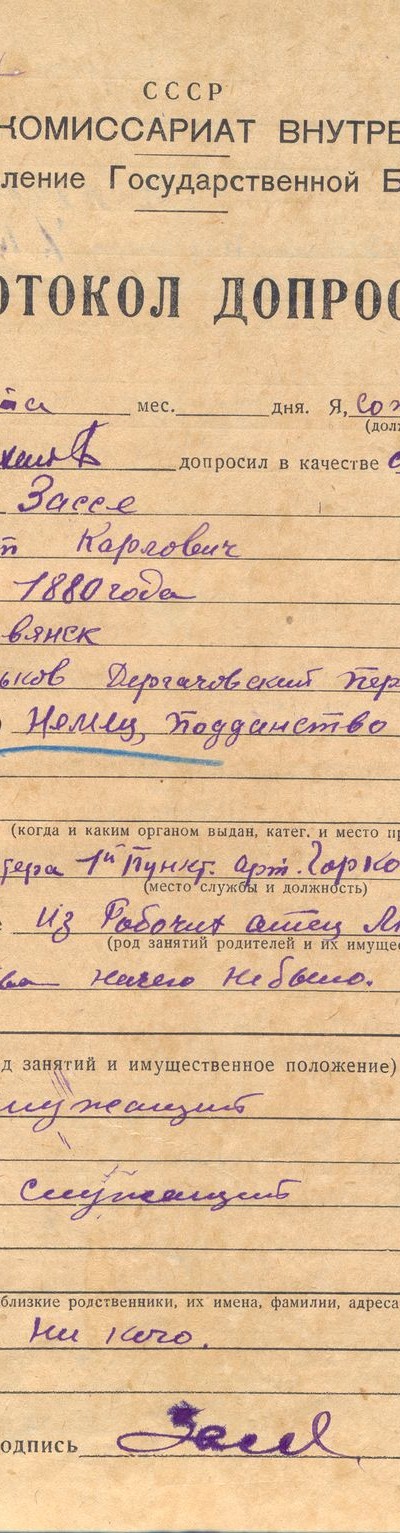 СССР
КОМИССАРИАТ ВНУТРЕ
ление Государственной Б
ОТОКОЛ ДОПРОС
мес. дня. Я,
(дол
допросил в качестве
Зассе
Карлович
1880 года
вянск
ьков Дергачовский пер
Немец, Подданство
(когда и каким органом выдан, катег. и место пр
тера 1й Пункт. арт. Горко
(место службы и должность)
Из Рабочих отец
(род занятий родителей и их имущес
ва нечего не было.
д занятий и имущественное положение)
служащий
служащий
близкие родственники, их имена, фамилии, адреса
Ни кого.
одпись Зассе